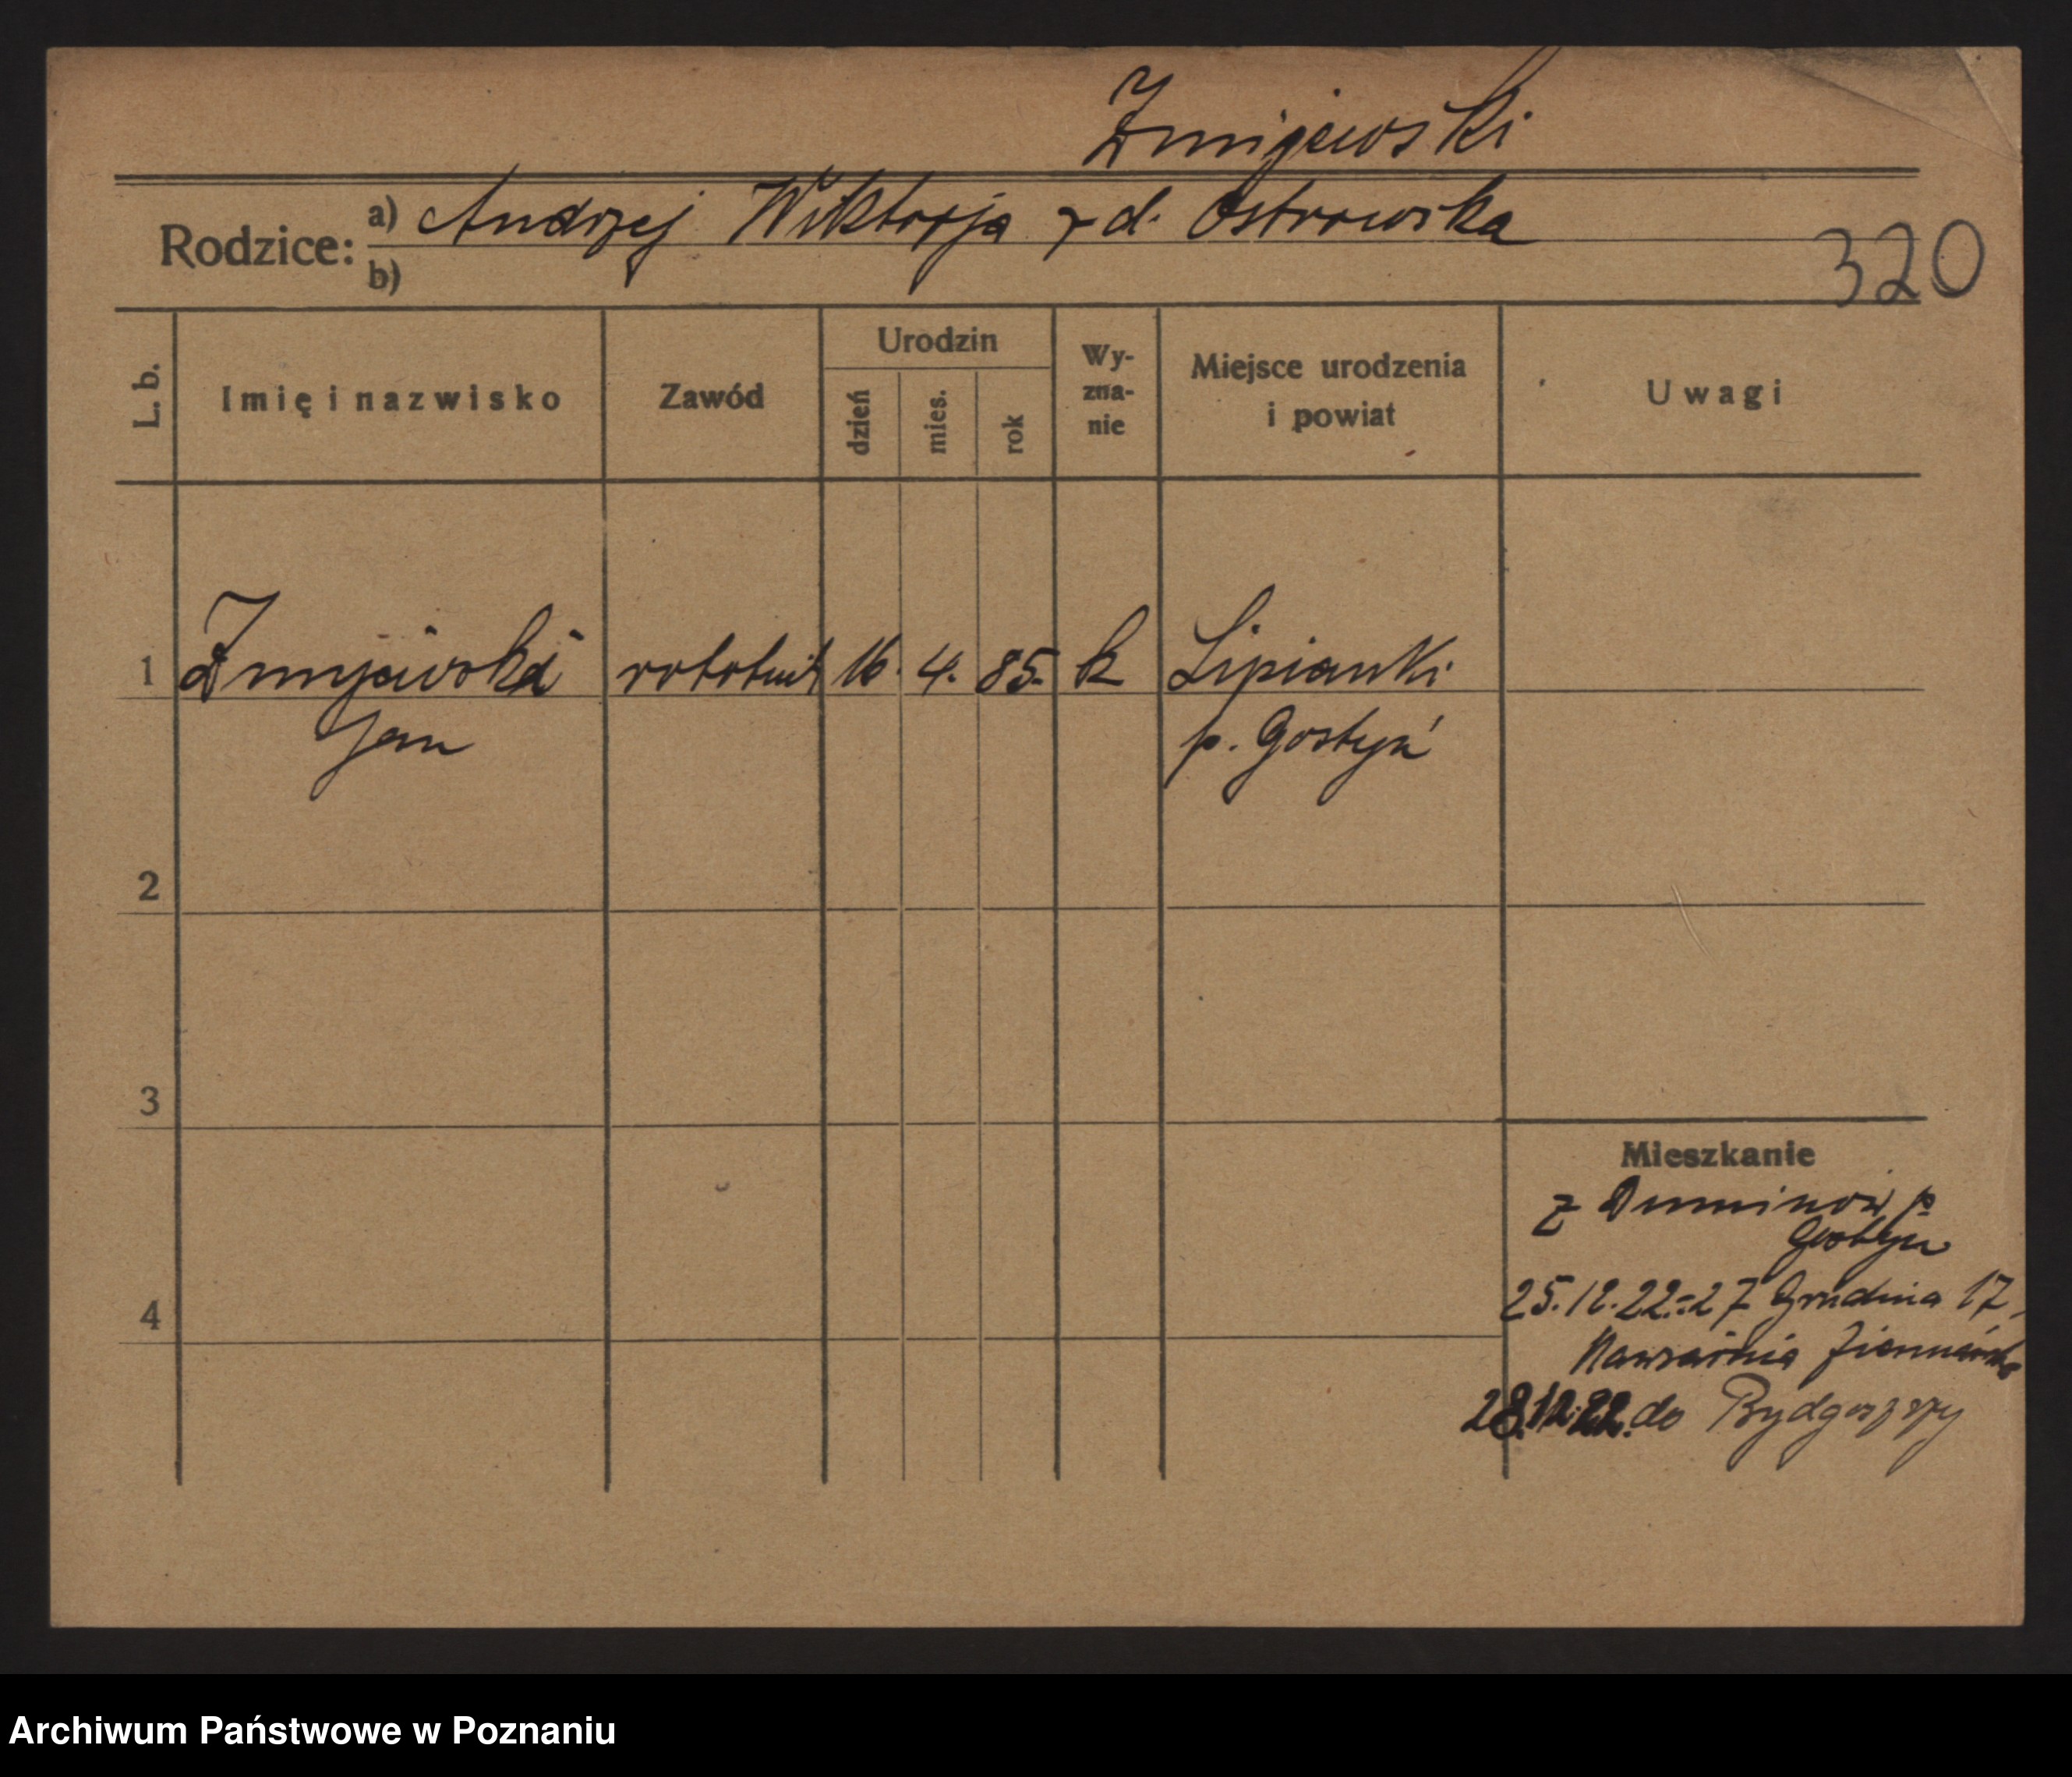 Żmijewski
Rodzice: a) Andrzej Wiktorja z d. Ostrowska
b)
320
L. b.
Imię i nazwisko
Zawód
Urodzin
dzień
mies.
rok
Wy-
zna-
nie
Miejsce urodzenia
i powiat
Uwagi
1 Żmijewski robotnik 16. 4. 85. k Lipianki
Jan p. Gostyń
2
3
4
Mieszkanie
z p
Gostyn
25.12.22.-27 Grudnia 17,
28.12.22. do Bydgoszczy
Archiwum Państwowe w Poznaniu